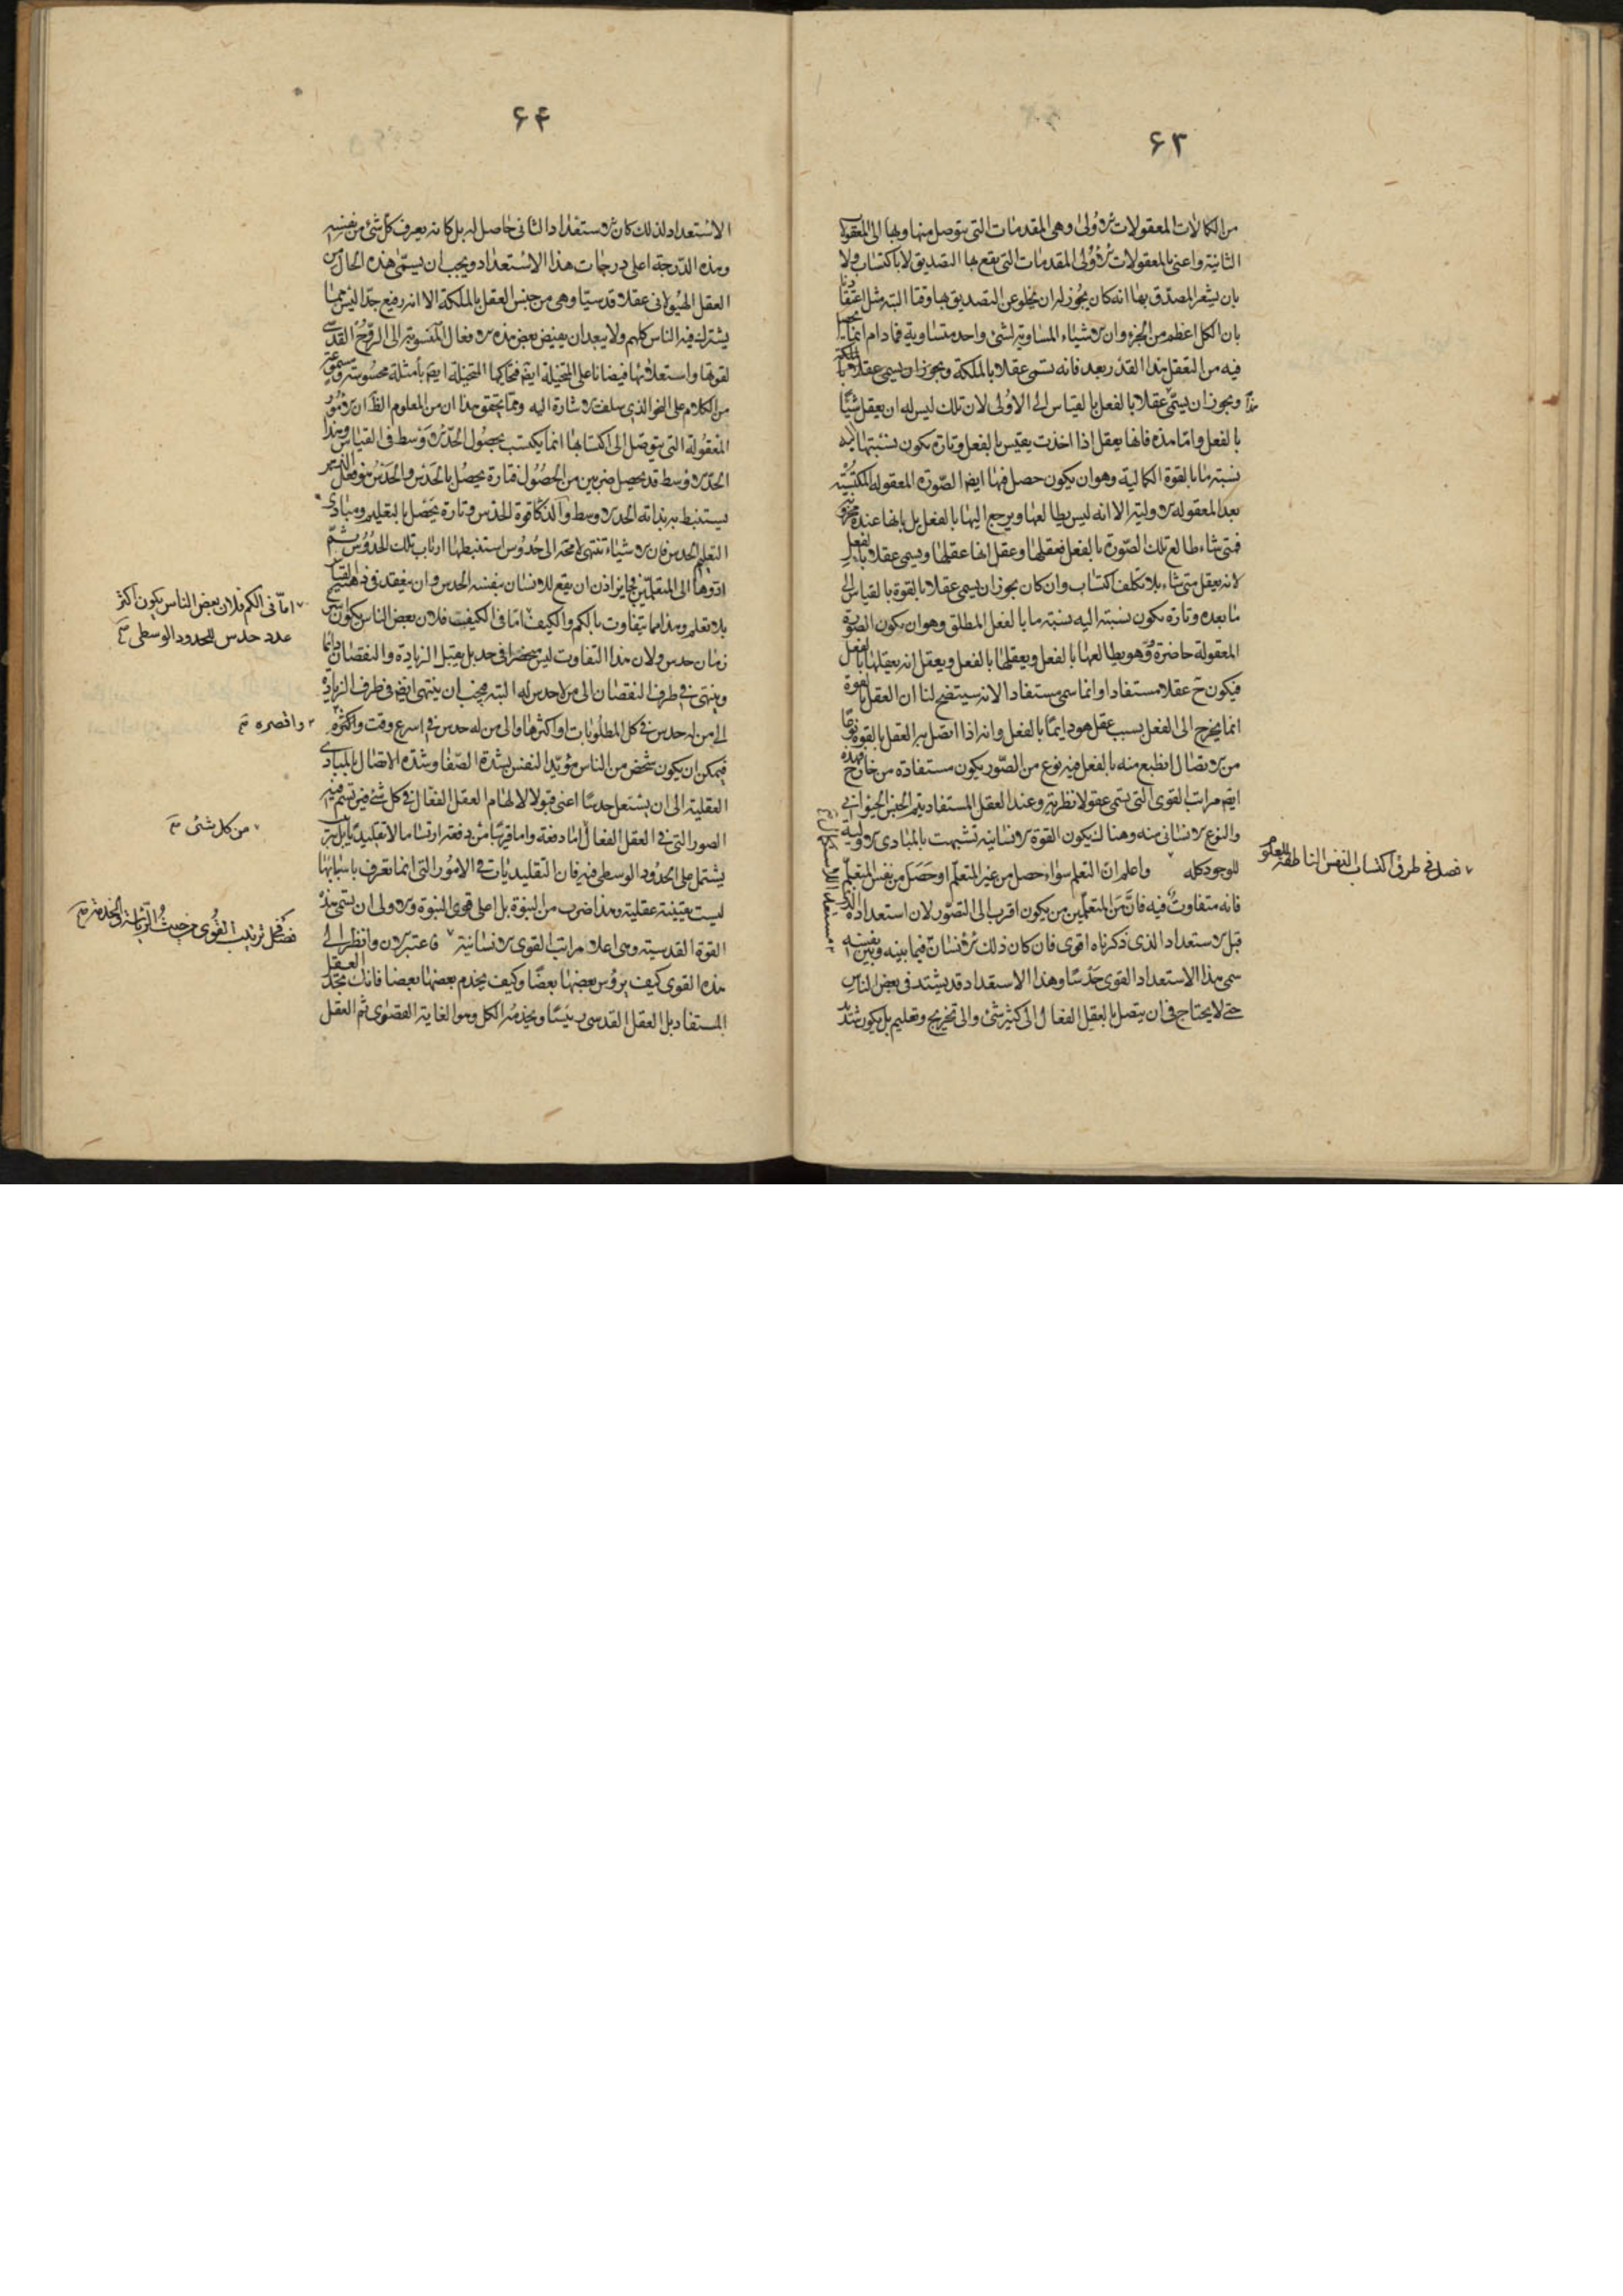 ۶۳
من الکمالات المعقولات الاولی وهی المقدمات التی یتوصل منها وبها الی المعقولات
الثانیة واعنی بالمعقولات الاولی المقدمات التی یقع بها التصدیق لا باکتساب ولا
بان یشعر المصدق بها انه کان یجوز له ان یخلو عن التصدیق بها وقتا البتة مثل اعتقادنا
بان الکل اعظم من الجزء وان الاشیاء المساویة لشئ واحد متساویة فمادام انما یحصل
فیه من التعقل هذا القدر بعد فانه تسمی عقلا بالملکة ویجوز ان یسمی عقلا
هذا ویجوز ان یسمی عقلا بالفعل بالقیاس الی الاولی لان تلک لیس له ان یعقل شیئا
بالفعل واما هذه فانها یعقل اذا اخذت یقیس بالفعل وتارة یکون نسبتها الیه
نسبة ما بالقوة الکمالیة وهو ان یکون حصل فیها ایضا الصورة المعقوله المکتسبة
بعد المعقوله الاولیة الا انه لیس یطالعها ویرجع الیها بالفعل بل کانها عنده مخزونة
فمتی شاء طالع تلک الصورة بالفعل فعقلها وعقل انها عقلها ویسمی عقلا بالفعل
لانه یعقل متی شاء بلا تکلف اکتساب وان کان یجوز ان یسمی عقلا بالقوة بالقیاس الی
ما بعده وتارة یکون نسبته الیه نسبة ما بالفعل المطلق وهو ان یکون الصورة
المعقولة حاضرة فیه وهو یطالعها بالفعل ویعقلها بالفعل ویعقل انه یعقلها بالفعل
فیکون ح عقلا مستفادا وانما سمی مستفادا لانه سیتضح لنا ان العقل بالقوة
انما یخرج الی الفعل بسبب عقل هو دایما بالفعل وانه اذا اتصل به العقل بالقوة نوعا
من الاتصال انطبع منه بالفعل فیه نوع من الصور یکون مستفادة من خارج فهذه
ایضم مراتب القوی التی یسمی عقولا نظریة وعند العقل المستفاد یتم الجنس الحیوانی
والنوع الانسانی منه وهنالک یکون القوة الانسانیة تشبهت بالمبادی الاولیة
للوجود کله ٧ واعلم ان التعلم سواء حصل من غیر المتعلم او حصل من نفس المتعلم
فانه متفاوت فیه فان من المتعلمین من یکون اقرب الی التصور لان استعداده الذی
قبل الاستعداد الذی ذکرناه اقوی فان کان ذلک الانسان فیما بینه وبین نفسه
سمی هذا الاستعداد القوی حدسا وهذا الاستعداد قد یشتد فی بعض الناس
حتی لا یحتاج فی ان یتصل بالعقل الفعال الی کثیر شئ والی تخریج وتعلیم بل یکون شدید
٧ فصل فی طرق اکتساب النفس الناطقة للعلوم
۶۴
الاستعداد لذلک کان الاستعداد الثانی حاصل له بل کانه یعرف کل شئ من نفسه
وهذه الدرجة اعلی درجات هذا الاستعداد ویجب ان یسمی هذه الحال من
العقل الهیولانی عقلا قدسیا وهی من جنس العقل بالملکة الا انه رفیع جدا لیس مما
یشترک فیه الناس کلهم ولا یبعد ان یفیض بعض هذه الافعال المنسوبة الی الروح القدسی
لقوتها واستعلائها فیضانا علی المتخیلة ایضم فتحاکیها المتخیلة ایضم بأمثلة محسوسة ومسموعة
من الکلام علی النحو الذی سلفت الاشارة الیه ومما یحقق هذا ان من المعلوم الظ ان الامور
المعقولة التی یتوصل الی اکتسابها انما یکتسب بحصول الحد الاوسط فی القیاس وهذا
الحد الاوسط قد یحصل ضربین من الحصول فتارة یحصل بالحدس والحدس هو فعل للذهن
یستنبط به بذاته الحد الاوسط والذکا قوة الحدس وتارة یحصل بالتعلیم ومبادی
التعلیم الحدس فان الاشیاء تنتهی لا محة الی حدوس استنبطها ارباب تلک الحدوس ثم
ادوها الی المتعلمین فجایز اذن ان یقع للانسان بنفسه الحدس وان ینعقد فی ذهنه القیاس
بلا تعلم وهذا مما یتفاوت بالکم والکیف ٧ اما فی الکیفیت فلان بعض الناس یکون اسرع
زمان حدس ولان هذا التفاوت لیس منحصرا فی حد بل یقبل الزیادة والنقصان دائما
وینتهی فی طرف النقصان الی من لا حدس له البته فیجب ان ینتهی ایضم فی طرف الزیاده
الی من له حدس فی کل المطلوبات او اکثرها والی من له حدس فی اسرع وقت واکثره
فیمکن ان یکون شخص من الناس مؤید النفس بشدة الصفا وشدة الاتصال بالمبادی
العقلیة الی ان یشتعل حدسا اعنی قبولا لالهام العقل الفعال فی کل شئ فیرتسم فیه
الصور التی فی العقل الفعال اما دفعة واما قریبا من دفعة ارتساما لا تقلیدیا بل بترتیب
یشتمل علی الحدود الوسطی فیه فان التقلیدیات فی الامور التی انما تعرف باسبابها
لیست یقینیة عقلیة وهذا ضرب من النبوة بل اعلی قوی النبوة والاولی ان یسمی هذه
القوة القدسیة وهی اعلا مراتب القوی الانسانیة ٧ فاعتبر الان وانظر الی
هذه القوی کیف یرؤس بعضها بعضا وکیف یخدم بعضها بعضا فانک تجد العقل
المستفاد بل العقل القدسی رئیسا ویخدمه الکل وهو الغایة القصوی ثم العقل
٧ اما فی الکم فلان بعض الناس یکون اکثر
عدد حدس للحدود الوسطی صح
٢ واقصره صح
٧ من کل شئ صح
فصل فی ترتیب القوی من حیث الریاسة والخدمة صح